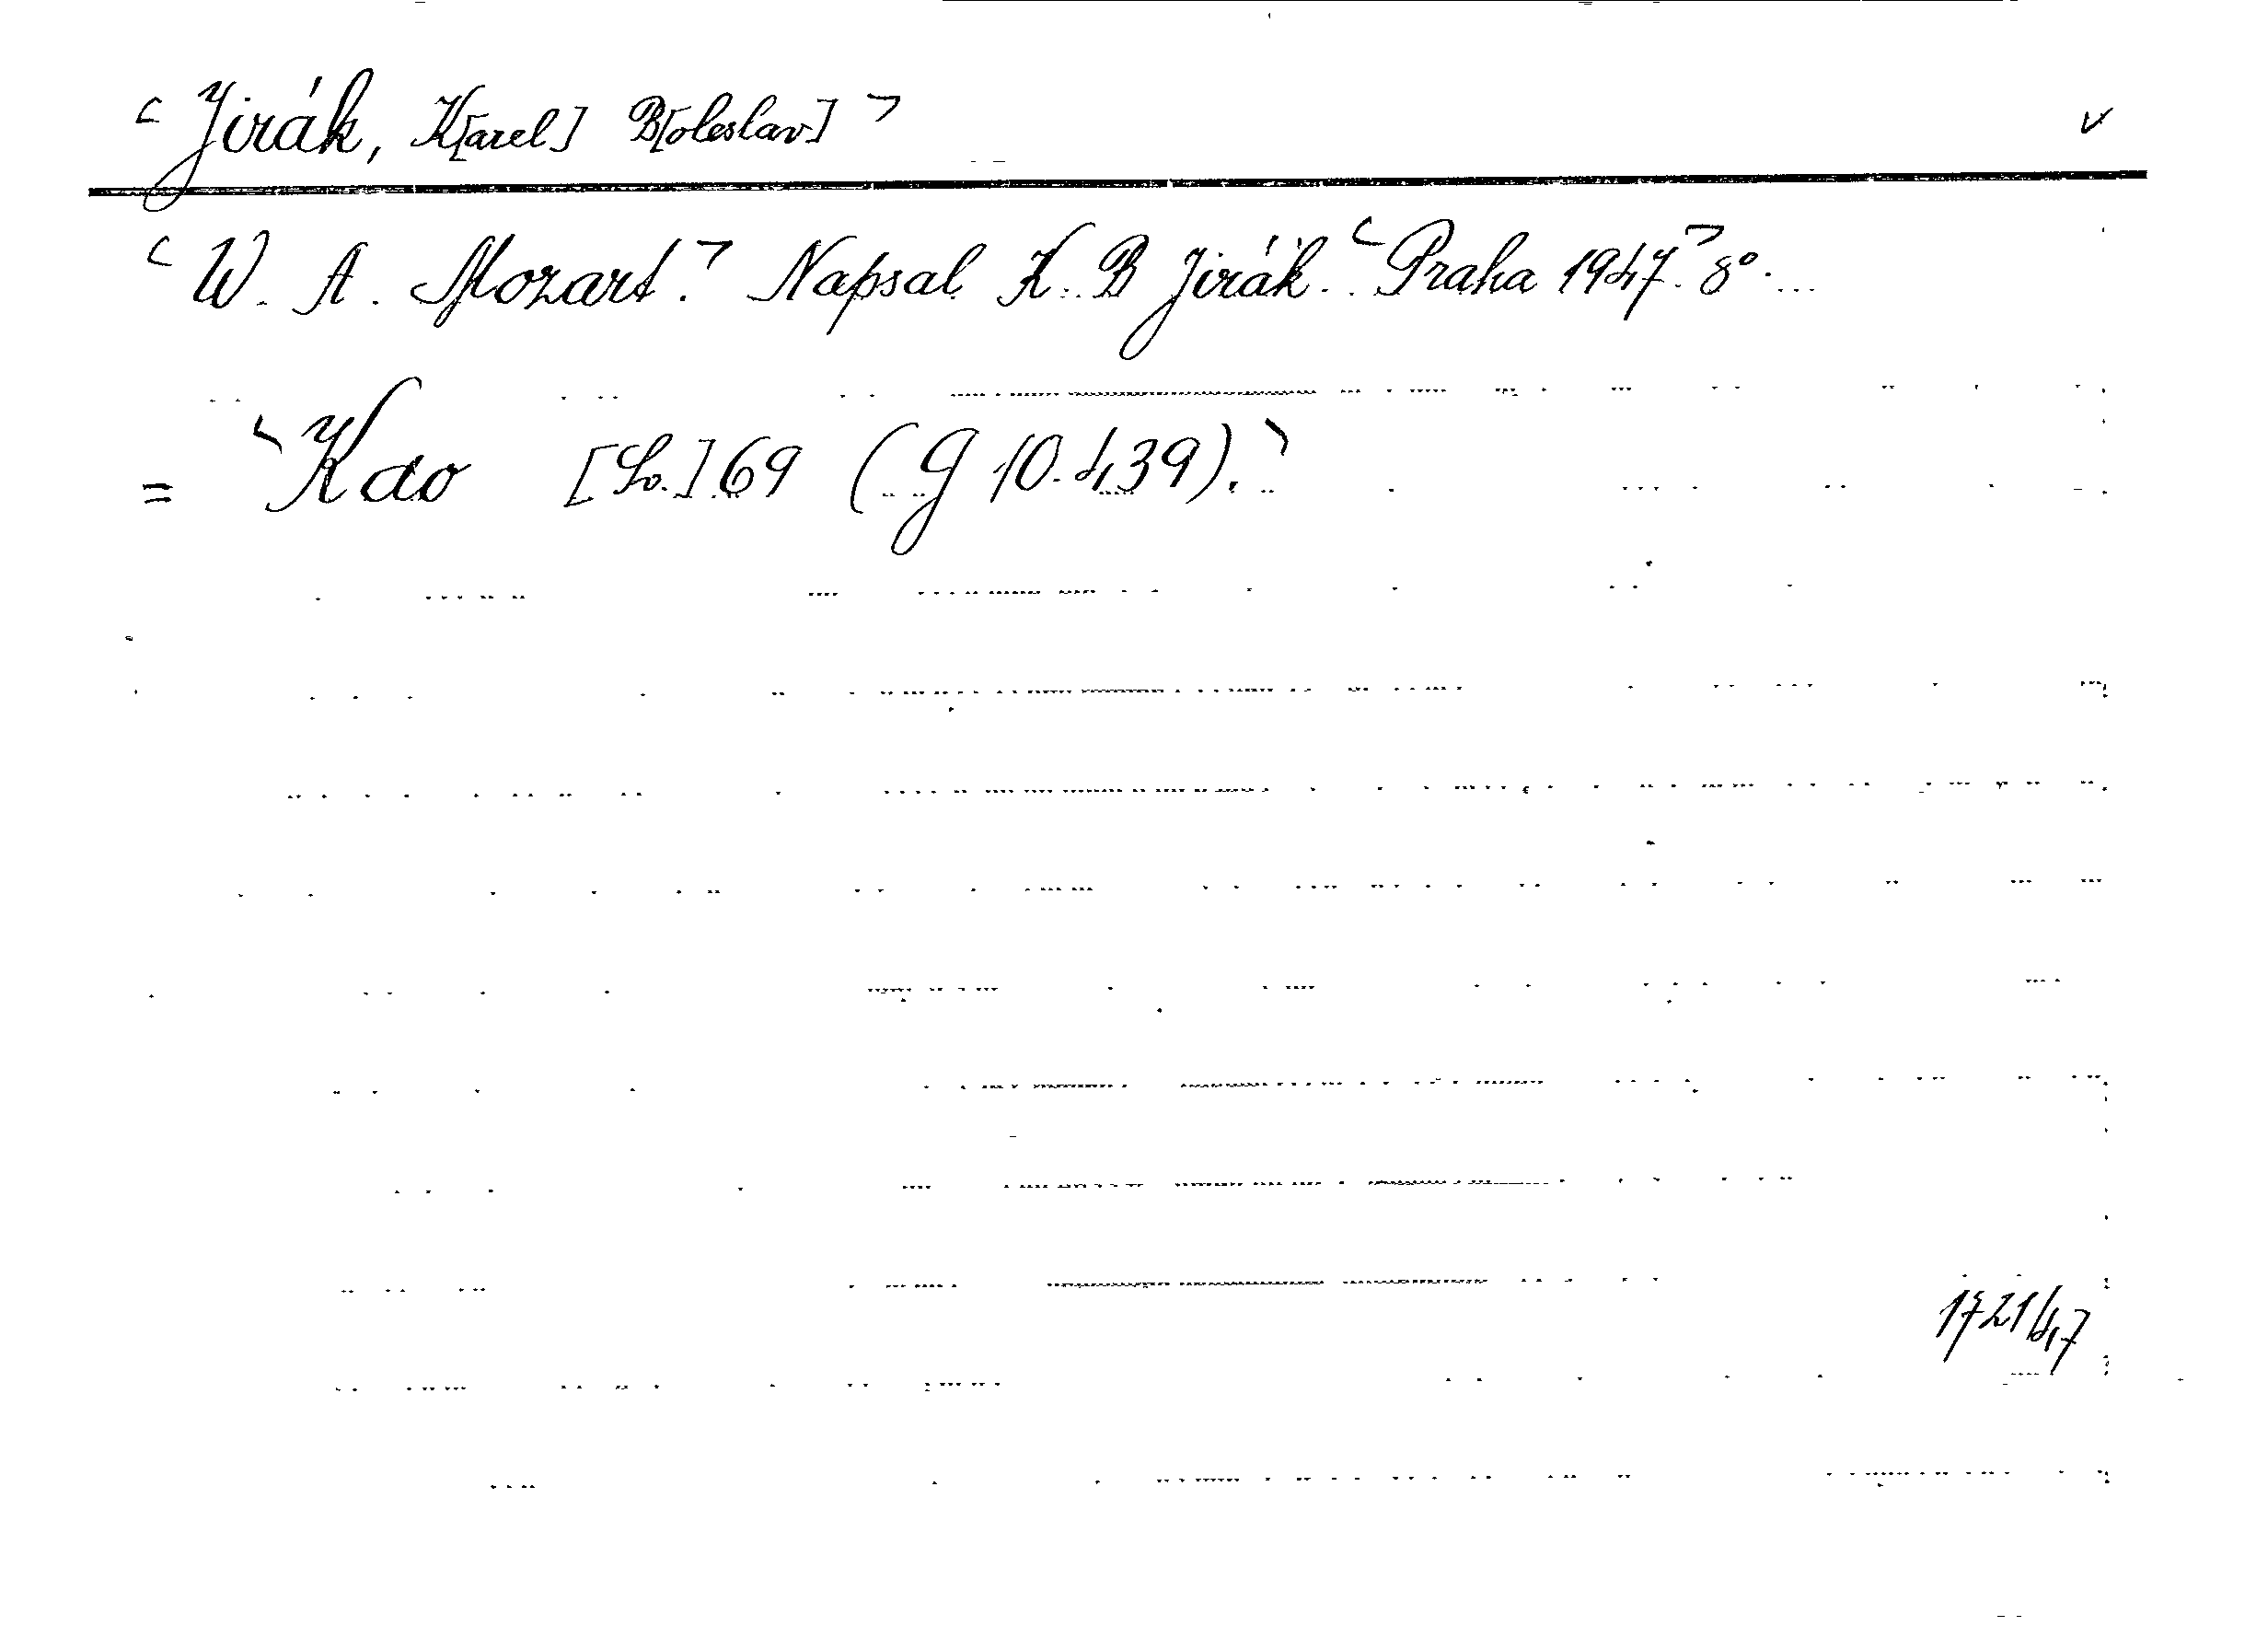 Jirák, K[arel] B[oleslav] v
W. A. Mozart. Napsal K. B Jirák. Praha 1947. 8°.
= Kdo [Sv.] 69 (G 10.439).
1721/47